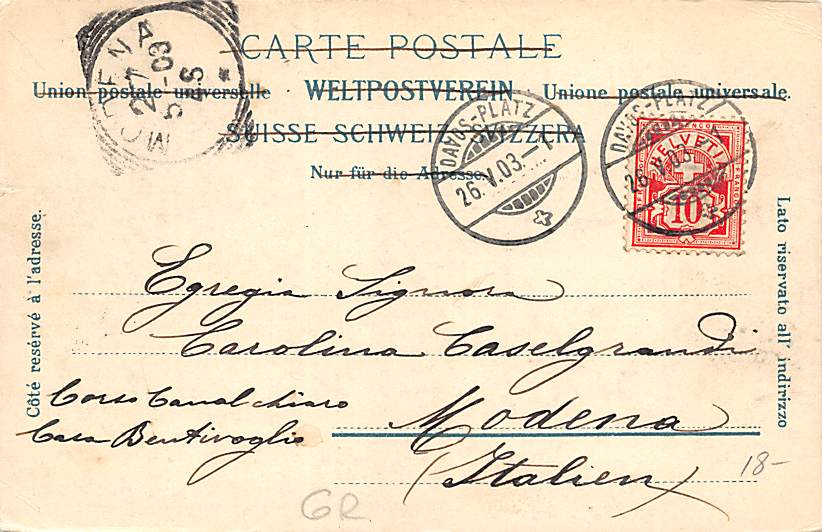 CARTE POSTALE
Union postale universelle WELTPOSTVEREIN Unione postale universale.
SUISSE SCHWEIZ SVIZZERA
Nur für die Adresse.
MODENA
27
5-03
DAVOS-PLATZ
26.V.03.-
DAVOS-PLATZ
26.V.03.
HELVETIA
FRANCO
10
Côté resérvé à l'adresse.
Lato riservato all' indirizzo
Egregia Signora
Carolina Caselgrandi
Corso Canalchiaro
Casa Bentivoglio
Modena
(Italien)
18-
GR